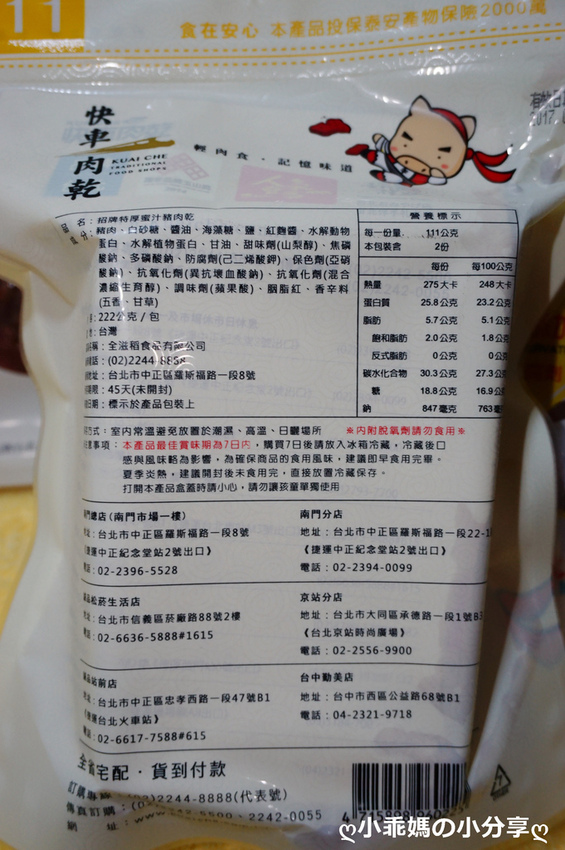 11
食在安心 本產品投保泰安產物保險2000萬
快車肉乾
KUAI CHE
TRADITIONAL
FOOD SHOPS
輕肉食・記憶味道
有效日
2017.
名：招牌特厚蜜汁豬肉乾
豬肉、白砂糖、醬油、海藻糖、鹽、紅麴醬、水解動物
蛋白、水解植物蛋白、甘油、甜味劑(山梨醇)、焦磷
酸鈉、多磷酸鈉、防腐劑(己二烯酸鉀)、保色劑(亞硝
酸鈉)、抗氧化劑(異抗壞血酸鈉)、抗氧化劑(混合
濃縮生育醇)、調味劑(蘋果酸)、胭脂紅、香辛料
(五香、甘草)
：222公克/包
：台灣
稱：全滋稻食品有限公司
話：(02)2244-8888
址：台北市中正區羅斯福路一段8號
期限：45天(未開封)
日期：標示於產品包裝上
營養標示
每一份量: 111公克
本包裝含 2份
每份 每100公克
熱量 275大卡 248大卡
蛋白質 25.8公克 23.2公克
脂肪 5.7公克 5.1公克
飽和脂肪 2.0公克 1.8公克
反式脂肪 0公克 0公克
碳水化合物 30.3公克 27.3公
糖 18.8公克 16.9公
鈉 847毫克 763毫
方式：室內常溫避免放置於潮濕、高溫、日曬場所 ※內附脫氧劑請勿食用※
注意事項：本產品最佳賞味期為7日內，購買7日後請放入冰箱冷藏，冷藏後口
感與風味略為影響，為確保商品的食用風味，建議即早食用完畢。
夏季炎熱，建議開封後未食用完，直接放置冷藏保存。
打開本產品盒蓋時請小心，請勿讓孩童單獨使用
南門總店(南門市場一樓)
地址：台北市中正區羅斯福路一段8號
《捷運中正紀念堂站2號出口》
電話：02-2396-5528
南門分店
地址：台北市中正區羅斯福路一段22-1
《捷運中正紀念堂站2號出口》
電話：02-2394-0099
誠品松菸生活店
地址：台北市信義區菸廠路88號2樓
電話：02-6636-5888#1615
京站分店
地址：台北市大同區承德路一段1號B3
《台北京站時尚廣場》
電話：02-2556-9900
誠品站前店
地址：台北市中正區忠孝西路一段47號B1
《捷運台北火車站》
電話：02-6617-7588#615
台中勤美店
地址：台中市西區公益路68號B1
電話：04-2321-9718
全省宅配・貨到付款
訂購專線：(02)2244-8888(代表號)
傳真訂購：2242-0055
網 址：
ღ小乖媽の小分享ღ